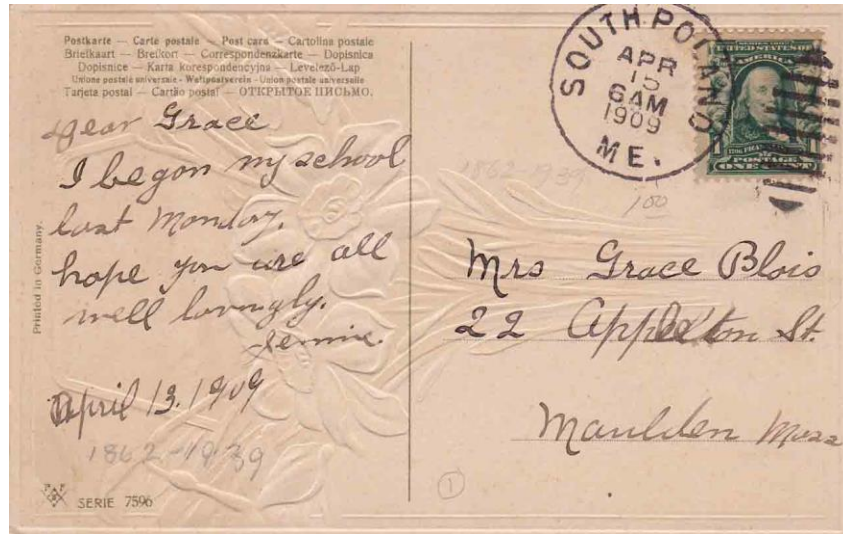 Postkarte — Carte postale — Post card — Cartolina postale
Briefkaart — Brefkort — Correspondenzkarte — Dopisnica
Dopisnice — Karta korespondencyjna — Levelező-Lap
Unione postale universale - Weltpostverein - Union postale universelle
Tarjeta postal — Cartão postal — ОТКРЫТОЕ ПИСЬМО.
Dear Grace
I began my school
last Monday.
hope you are all
well lovingly.
Jennie.
April 13. 1909
1862-1939
SERIE 7596
Printed in Germany.
SOUTH PORTLAND
APR
15
6 AM
1909
ME.
UNITED STATES OF
AMERICA
POSTAGE
ONE CENT
1862-1939
100
Mrs Grace Blois
22 Appleton St.
Maulden Mass
1